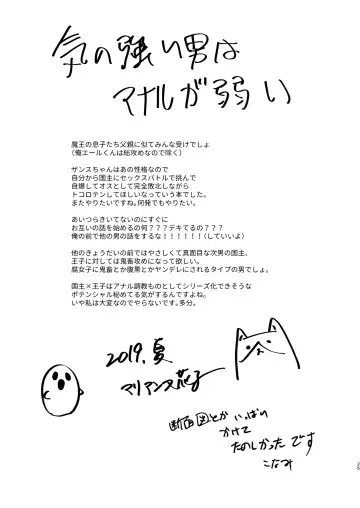 気の強い男は
アナルが弱い
魔王の息子たち父親に似てみんな受けでしょ
(俺エールくんは総攻めなので除く)
ザンスちゃんはあの性格なので
自分から国主にセックスバトルで挑んで
自爆してオスとして完全敗北しながら
トコロテンしてほしいなっていう本でした。
またやりたいですね。何発でもやりたい。
あいつらきいてないのにすぐに
お互いの話を始めるの何???デキてるの???
俺の前で他の男の話をするな!!!!!!(していいよ)
他のきょうだいの前ではやさしくて真面目な次男の国主、
王子に対しては鬼畜攻めになって欲しい。
腐女子に鬼畜とか腹黒とかヤンデレにされるタイプの男でしょ。
国主×王子はアナル調教ものとしてシリーズ化できそうな
ポテンシャル秘めてる気がするんですよね。
いや私は大変なのでやらないです。多分。
2019.夏
マリアンヌ荒子
断面図とかいっぱい
かけて
たのしかったです
こなみ